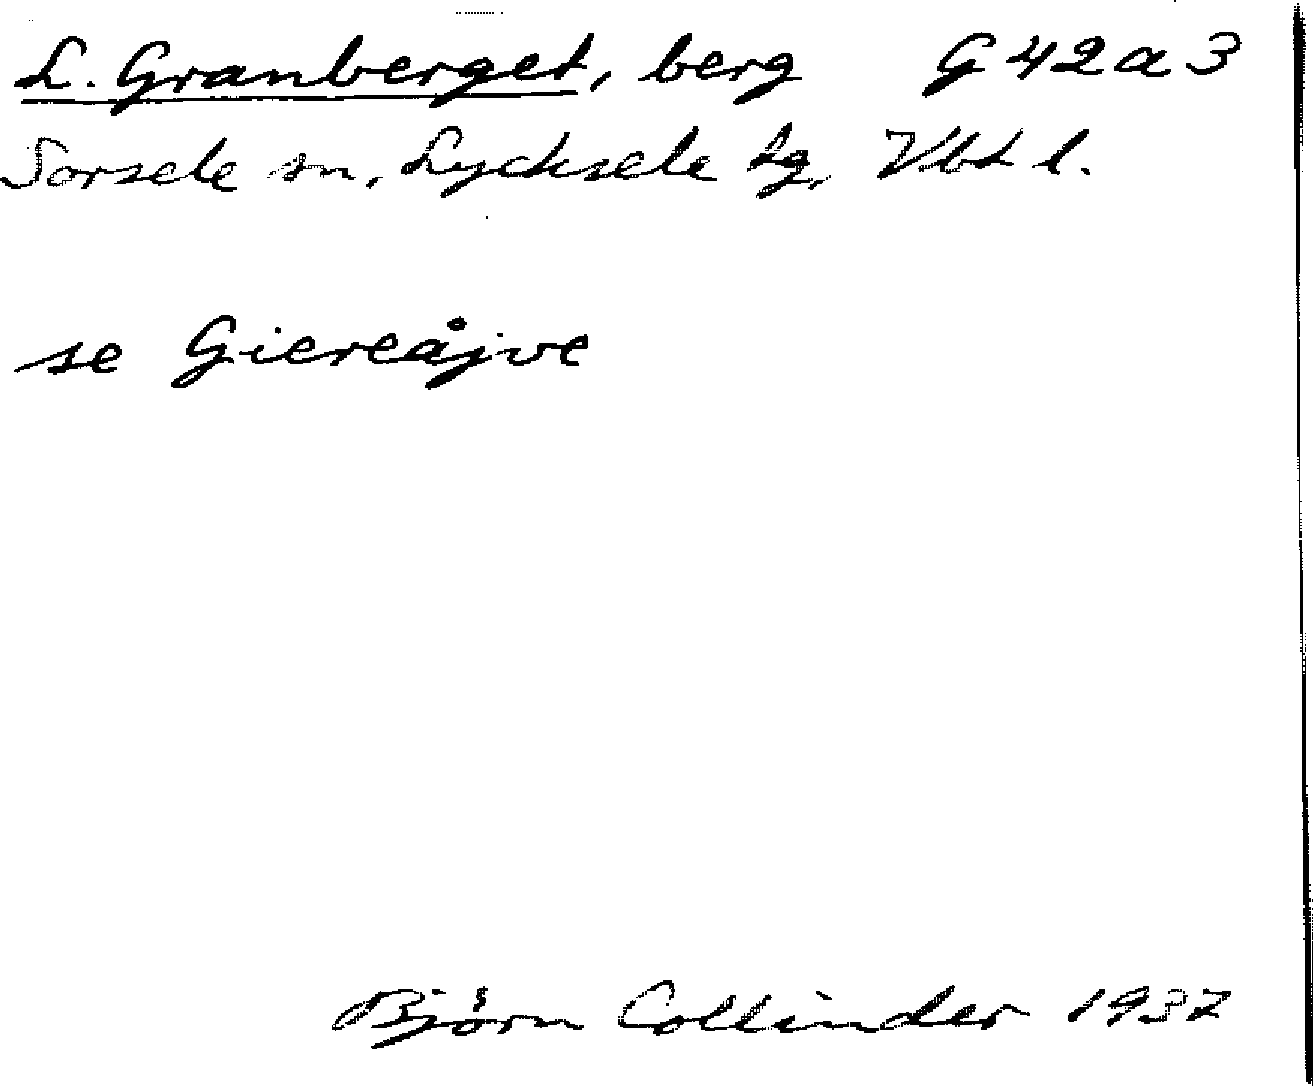 L. Granberget, berg G42a3
Sorsele sn, Lycksele lg, Vbt l.
se Giereåjve
Björn Collinder 1937